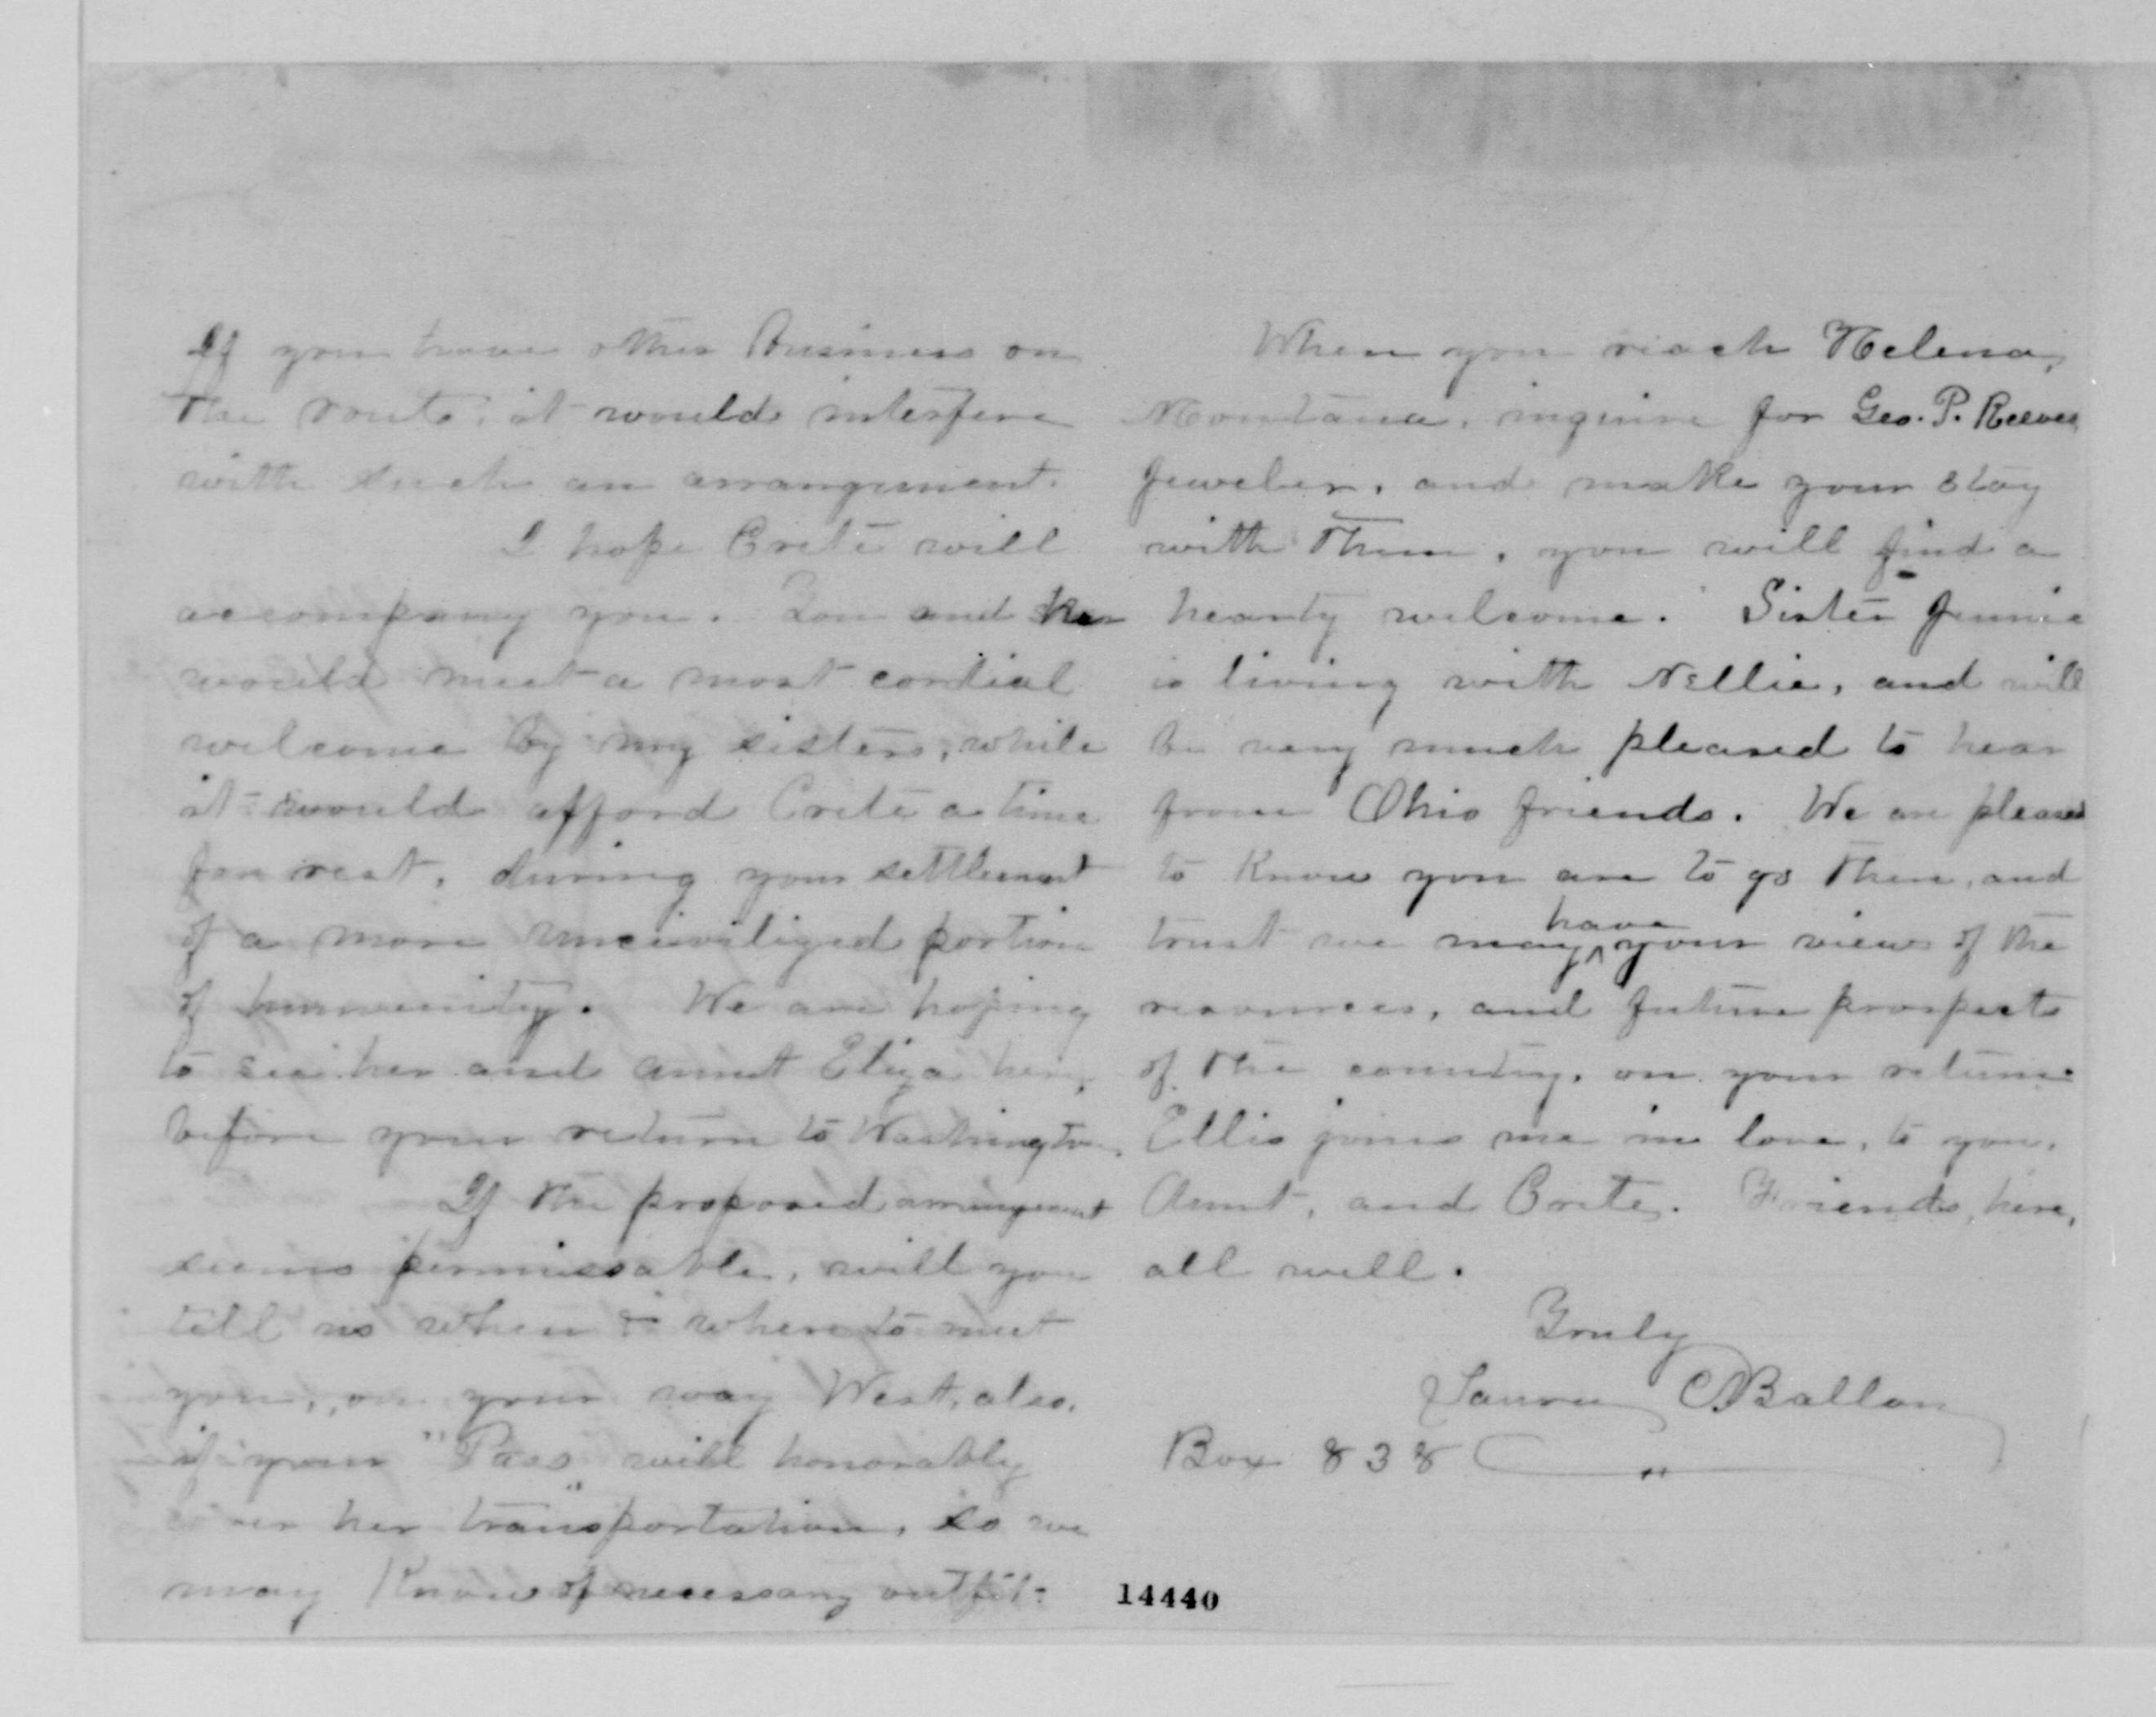 If you have other Business on
the route, it would interfere
with such an arrangement.
I hope Crete will
accompany you. You and her
would meet a most cordial
welcome by my sisters, while
it would afford Crete a time
for rest, during your settlement
of a more uncivilized portion
of humanity. We are hoping
to see her and Aunt Eliza here,
before your return to Washington.
If the proposed arrangement
seems permissable, will you
tell us when & where to meet
you, on your way West, also,
if your "Pass" will honorably
cover her transportation, so we
may Know of necessary outfit.
When you reach Helena,
Montana, inquire for Geo. P. Reeves
Jeweler, and make your stay
with Them, you will find a
hearty welcome. Sister Jennie
is living with Nellie, and will
be very much pleased to hear
from Ohio friends. We are pleased
to Know you are to go There, and
trust we may have your views of the
resources, and future prospects
of the country, on your return.
Ellis joins me in love, to you,
Aunt, and Crete. Friends, here,
all well.
Truly
Laura C Ballou
Box 838
14440